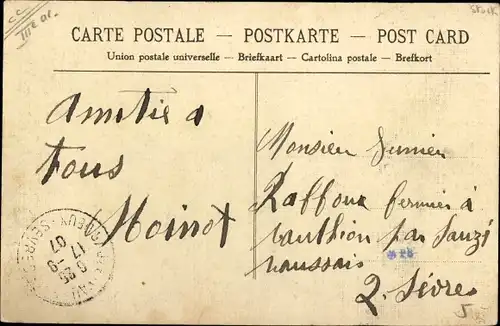 CARTE POSTALE — POSTKARTE — POST CARD
Union postale universelle — Briefkaart — Cartolina postale — Brefkort
Amitié a
tous
Moinot
Monsieur
Raffoux fermier à
par Sauzé
vaussais
2. Sèvres
17 - 9
07